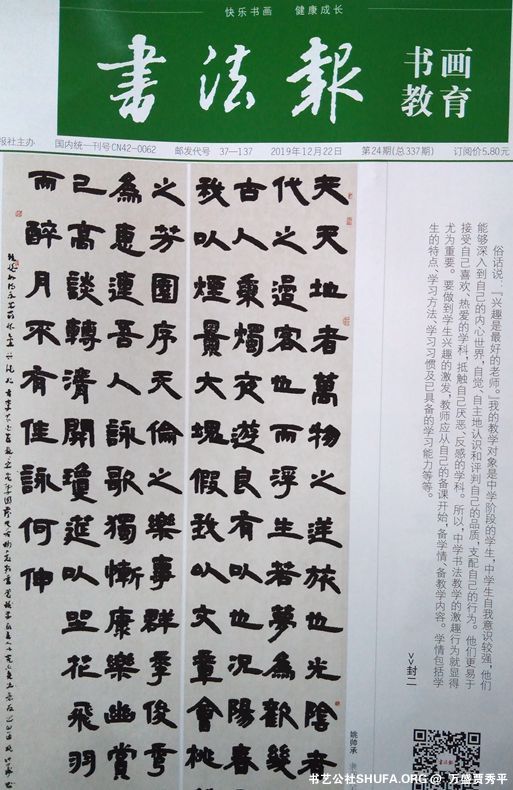 快乐书画 健康成长
書法報
书画
教育
报社主办 国内统一刊号CN42-0062 邮发代号 37—137 2019年12月22日 第24期(总337期) 订阅价5.80元
俗话说：『兴趣是最好的老师。』我的教学对象是中学阶段的学生，中学生自我意识较强，他们
能够深入到自己的内心世界，自觉、自主地认识和评判自己的品质，支配自己的行为。他们更易于
接受自己喜欢、热爱的学科，抵触自己厌恶、反感的学科。所以，中学书法教学的激趣行为就显得
尤为重要。要做到学生兴趣的激发，教师应从自己的备课开始，备学情、备教学内容。学情包括学
生的特点、学习方法、学习习惯及已具备的学习能力等等。
>>封二
夫天地者萬物之逆旅也光陰者
代之過客也而浮生若夢為歡幾
古人秉燭夜遊良有以也況陽春
我以煙景大塊假我以文章會桃
之芳園序天倫之樂事群季俊秀
為惠連吾人詠歌獨慚康樂幽賞
已高談轉清開瓊筵以坐花飛羽
而醉月不有佳詠何伸
姚帅承
书艺公社SHUFA.ORG @ 万盛贾秀平